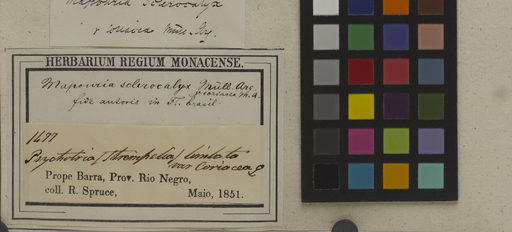 Mapouria sclerocalyx
Müll. Arg.
HERBARIUM REGIUM MONACENSE.
Mapouria sclerocalyx Müll. Arg.
fide autoris in Fl. brasil.
1477
Psychotria limbata
var Coriacea
Prope Barra, Prov. Rio Negro,
coll. R. Spruce, Maio, 1851.